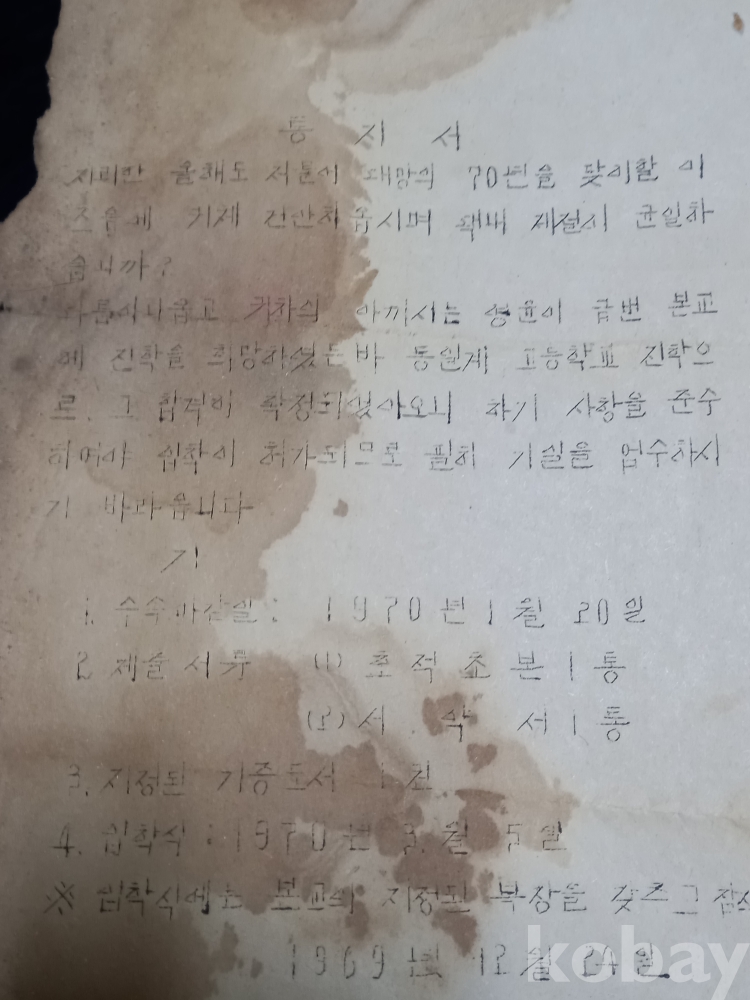 통 지 서
올해도 저물어 대망의 70년을 맞이할 이
즈음에 귀제 만안하옵시며 댁내 제절이 균일하
옵니까?
아끼시는 영윤이 금번 본교
에 진학을 희망하셨는바 동일계 고등학교 진학으
로 그 합격이 확정되었아오니 하기 사항을 준수
하여야 입학이 허가되므로 필히 기일을 엄수하시
기 바라옵니다
기
1. 수속마감일: 1970년 1월 20일
2. 제출서류 (1) 호적초본 1통
(2) 서 약 서 1통
3. 지정된 기증도서 1권
4. 입학식 : 1970년 3월 5일
※ 입학식에는 본교의 지정된 복장을 갖추고
1969년 12월 24일
kobay